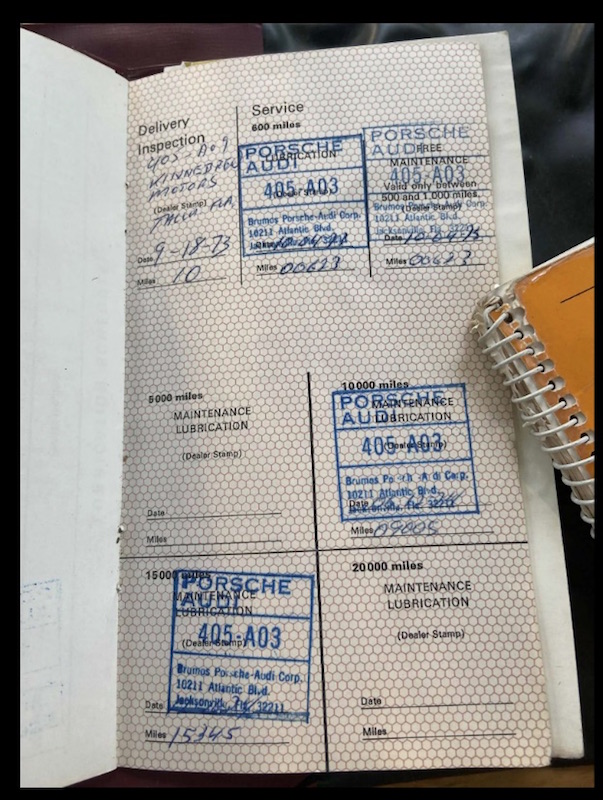 Delivery
Inspection
405-A09
MOTORS
(Dealer Stamp)
TALLA FLA,
Date 9-18-73
Miles 10
Service
600 miles
PORSCHE
AUDI
LUBRICATION
405-A03
Brumos Porsche-Audi Corp.
10211 Atlantic Blvd.
Miles 00623
PORSCHE
AUDI
FREE
MAINTENANCE
405-A03
Valid only between
500 and 1,000 miles
(Dealer Stamp)
Brumos Porsche-Audi Corp.
10211 Atlantic Blvd.
Jacksonville, Fla. 32211
Date
Miles 00623
5000 miles
MAINTENANCE
LUBRICATION
(Dealer Stamp)
Date
Miles
10000 miles
PORSCHE
AUDI
MAINTENANCE
LUBRICATION
405-A03
(Dealer Stamp)
Brumos Porsche-Audi Corp.
10211 Atlantic Blvd.
Jacksonville, Fla. 32211
Date
Miles 09005
15000 miles
PORSCHE
AUDI
MAINTENANCE
LUBRICATION
405-A03
(Dealer Stamp)
Brumos Porsche-Audi Corp.
10211 Atlantic Blvd.
Jacksonville, Fla. 32211
Date
Miles 15345
20000 miles
MAINTENANCE
LUBRICATION
(Dealer Stamp)
Date
Miles